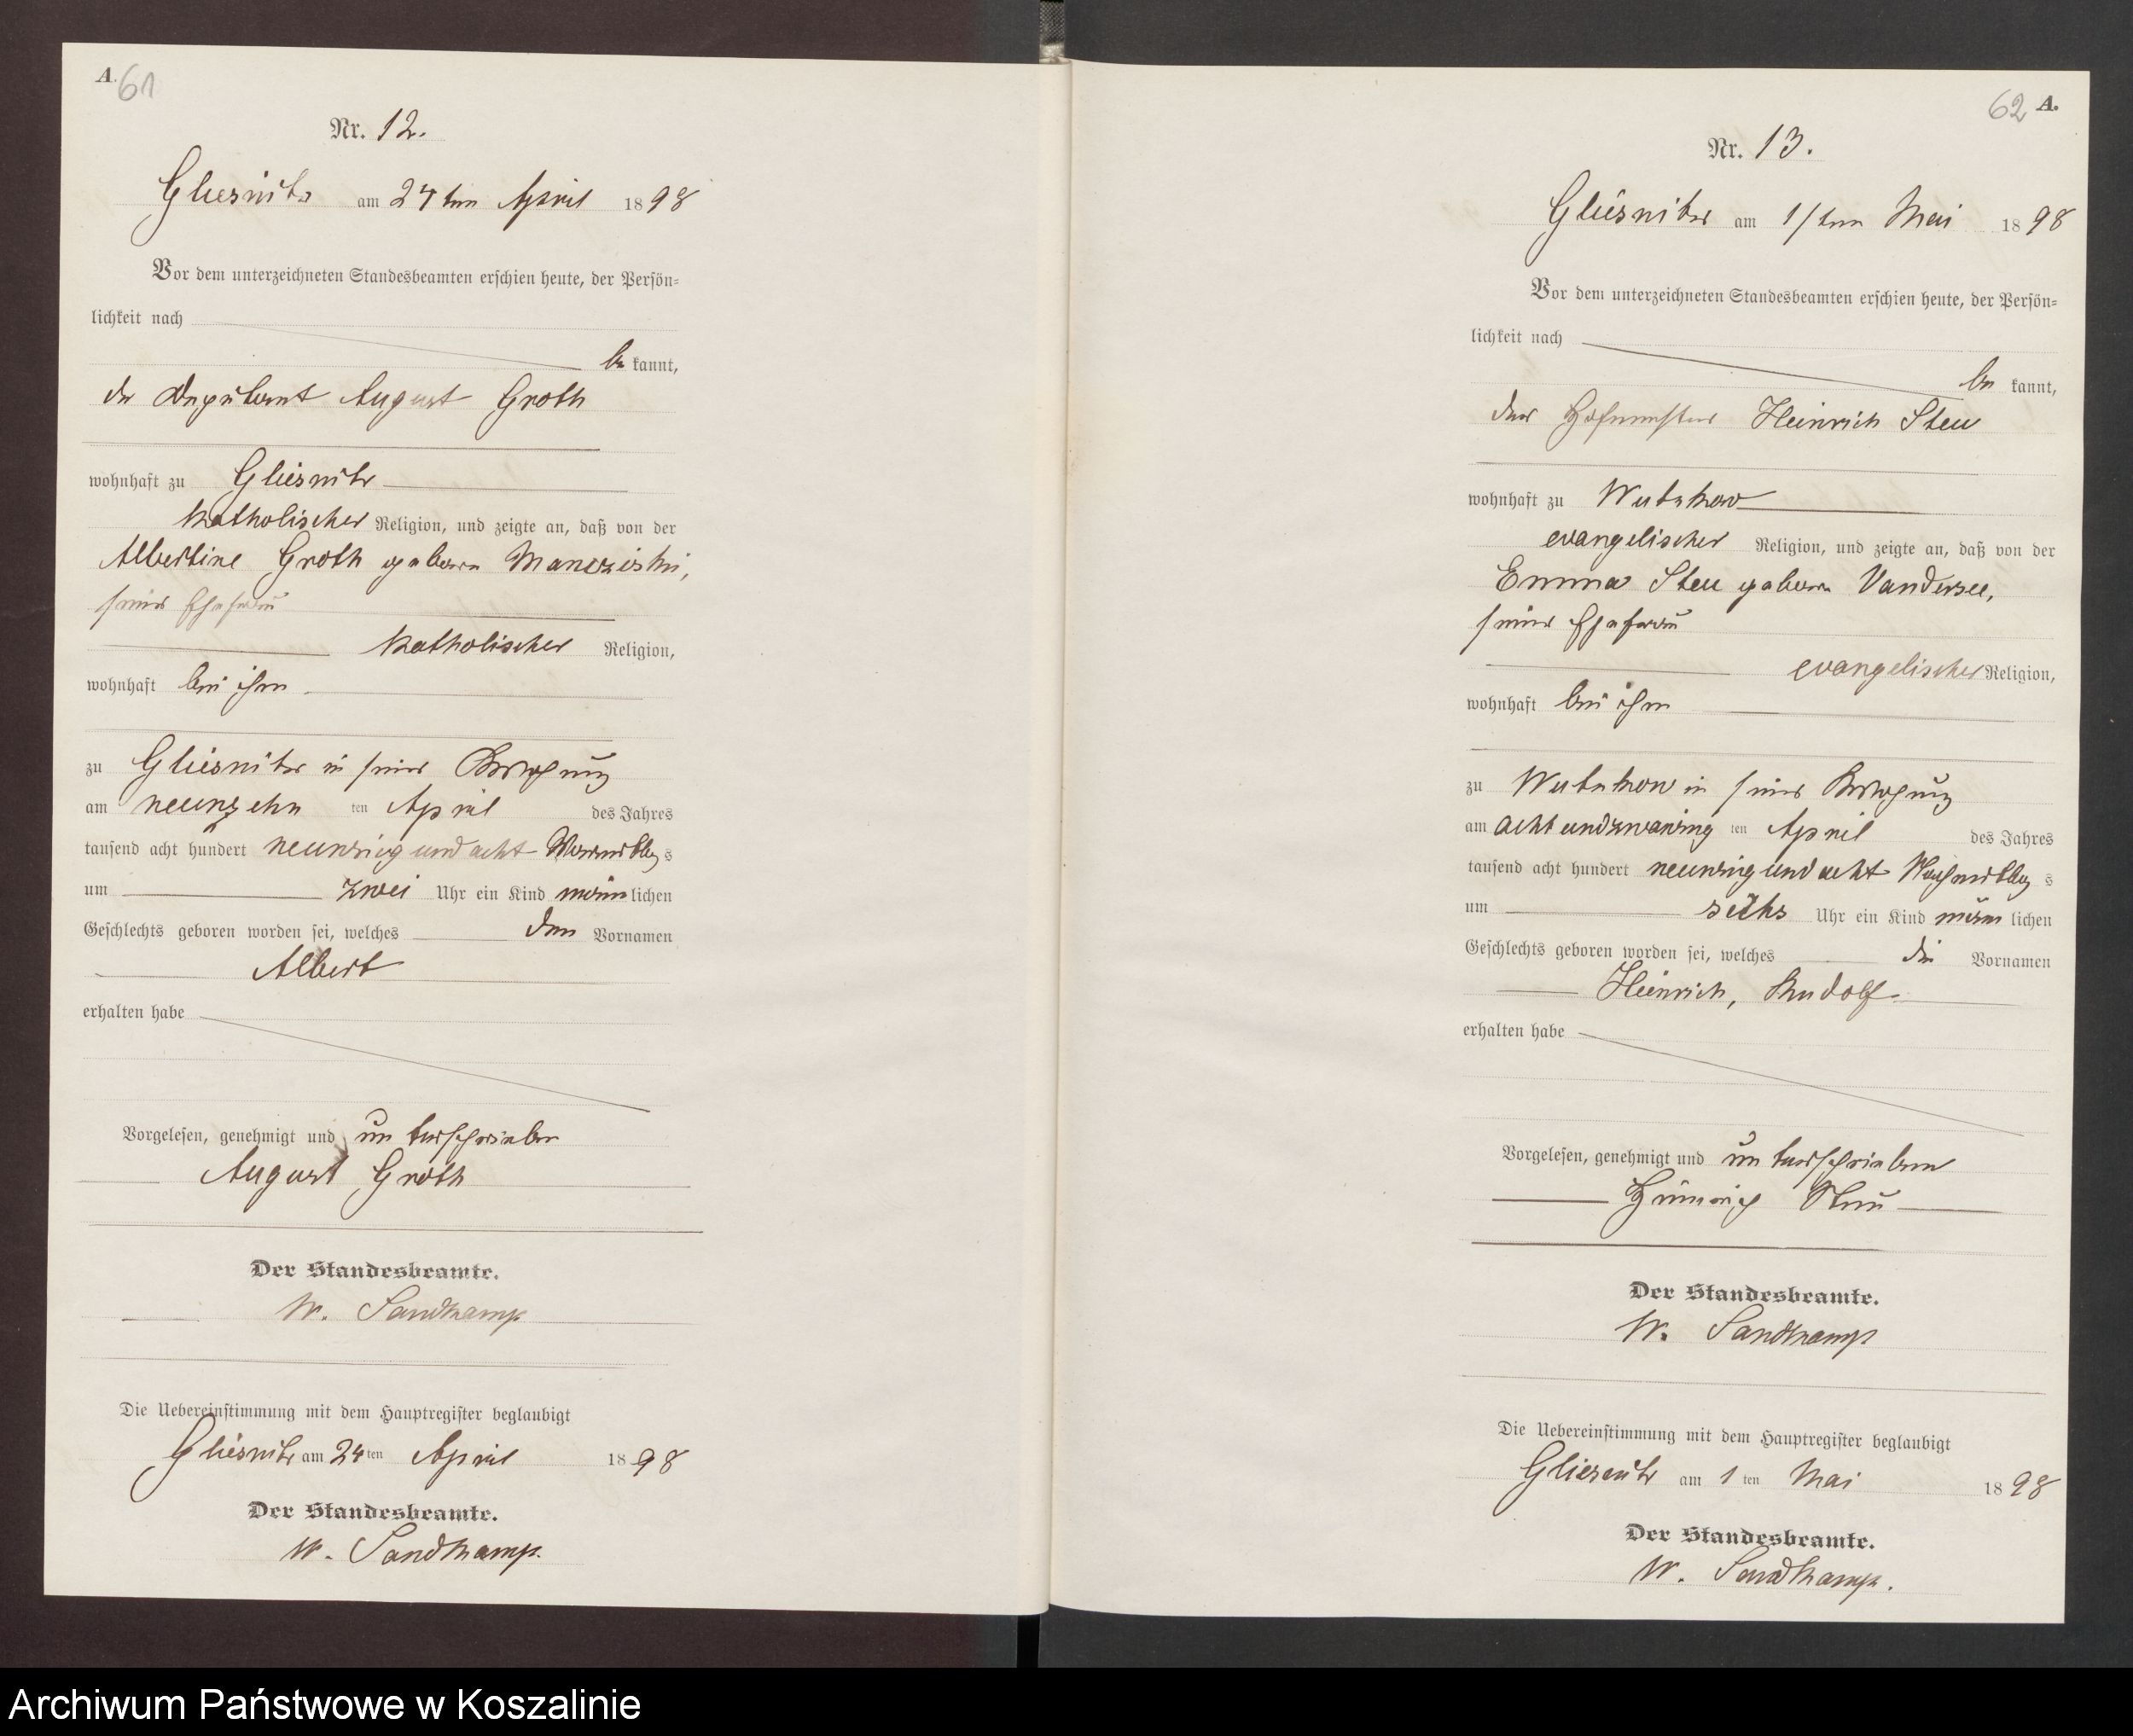 A. 61
Nr. 12.
Gliesnitz am 24ten April 1898
Vor dem unterzeichneten Standesbeamten erschien heute, der Persön=
lichkeit nach
be kannt,
der Deputant August Groth
wohnhaft zu Gliesnitz
katholischer Religion, und zeigte an, daß von der
Albertine Groth geboren Manczeski,
seiner Ehefrau
katholischer Religion,
wohnhaft bei ihm
zu Gliesnitz in seiner Wohnung
am neunzehn ten April des Jahres
tausend acht hundert neunzig und acht Vormittags
um zwei Uhr ein Kind männlichen
Geschlechts geboren worden sei, welches den Vornamen
Albert
erhalten habe
Vorgelesen, genehmigt und unterschrieben
August Groth
Der Standesbeamte.
W. Sandkamp
Die Uebereinstimmung mit dem Hauptregister beglaubigt
Gliesnitz am 24ten April 1898
Der Standesbeamte.
W. Sandkamp.
62 A.
Nr. 13.
Gliesnitz am 1ten Mai 1898
Vor dem unterzeichneten Standesbeamten erschien heute, der Persön=
lichkeit nach
be kannt,
der Hofmeister Heinrich Steu
wohnhaft zu Wutzkow
evangelischer Religion, und zeigte an, daß von der
Emma Steu geboren Vandersee,
seiner Ehefrau
evangelischer Religion,
wohnhaft bei ihm
zu Wutzkow in seiner Wohnung
am acht und zwanzig ten April des Jahres
tausend acht hundert neunzig und acht Nachmittags
um sechs Uhr ein Kind männlichen
Geschlechts geboren worden sei, welches die Vornamen
Heinrich, Rudolf
erhalten habe
Vorgelesen, genehmigt und unterschrieben
Heinrich Steu
Der Standesbeamte.
W. Sandkamp
Die Uebereinstimmung mit dem Hauptregister beglaubigt
Gliesnitz am 1ten Mai 1898
Der Standesbeamte.
W. Sandkamp.
Archiwum Państwowe w Koszalinie